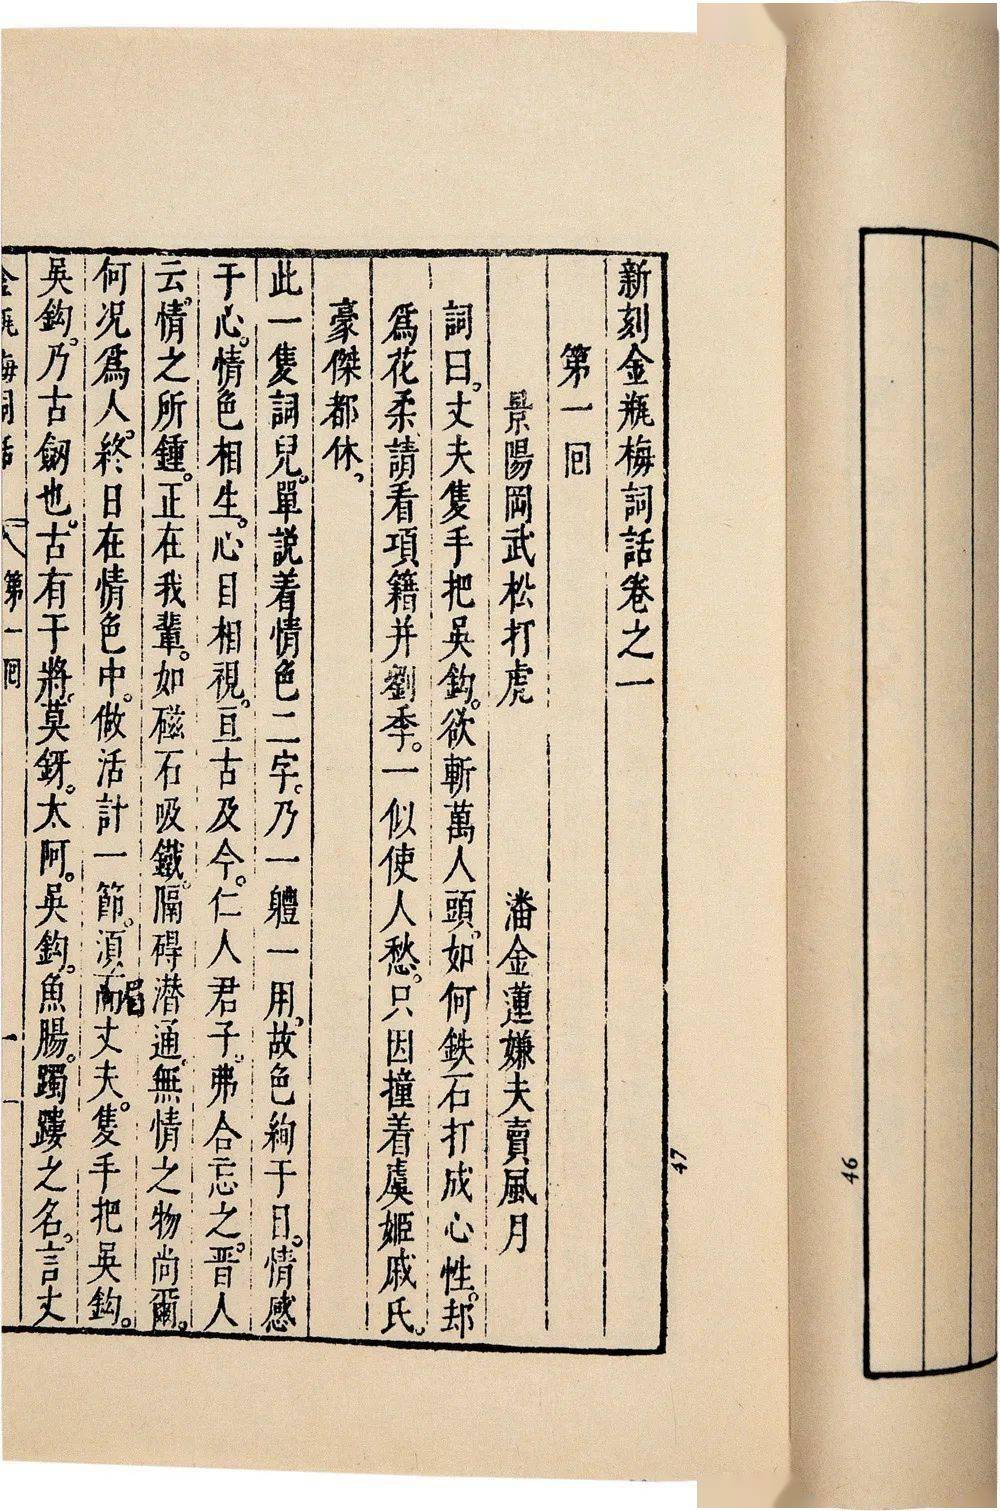 新刻金瓶梅詞話卷之一
第一回
景陽岡武松打虎　潘金蓮嫌夫賣風月
詞曰。丈夫隻手把吳鈎。欲斬萬人頭。如何鉄石打成心性。却
爲花柔請看項籍并劉季。一似使人愁。只因撞着虞姬戚氏。
豪傑都休。
此一隻詞兒。單説着情色二字。乃一體一用。故色絢于目。情感
于心。情色相生。心目相視。亘古及今。仁人君子。弗合忘之。晋人
云。情之所鍾。正在我輩。如磁石吸鐵。隔碍潜通。無情之物尚爾。
何况爲人。終日在情色中。做活計一節。須而丈夫。隻手把吳鈎。
眉
吳鈎。乃古劒也。古有干將。莫釾。太阿。吳鈎。魚腸。躅踛之名。言丈
金瓶梅詞話　第一回　一
47
46